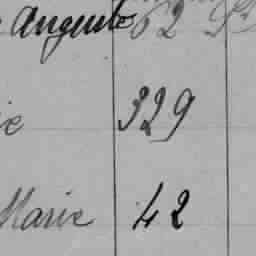 Angente 62
ie 329
Marie 42